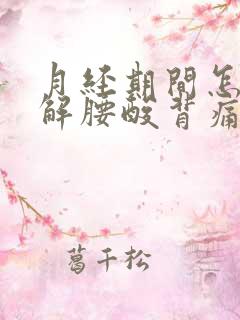 月经期間怎
解腰酸背痛
葛千松